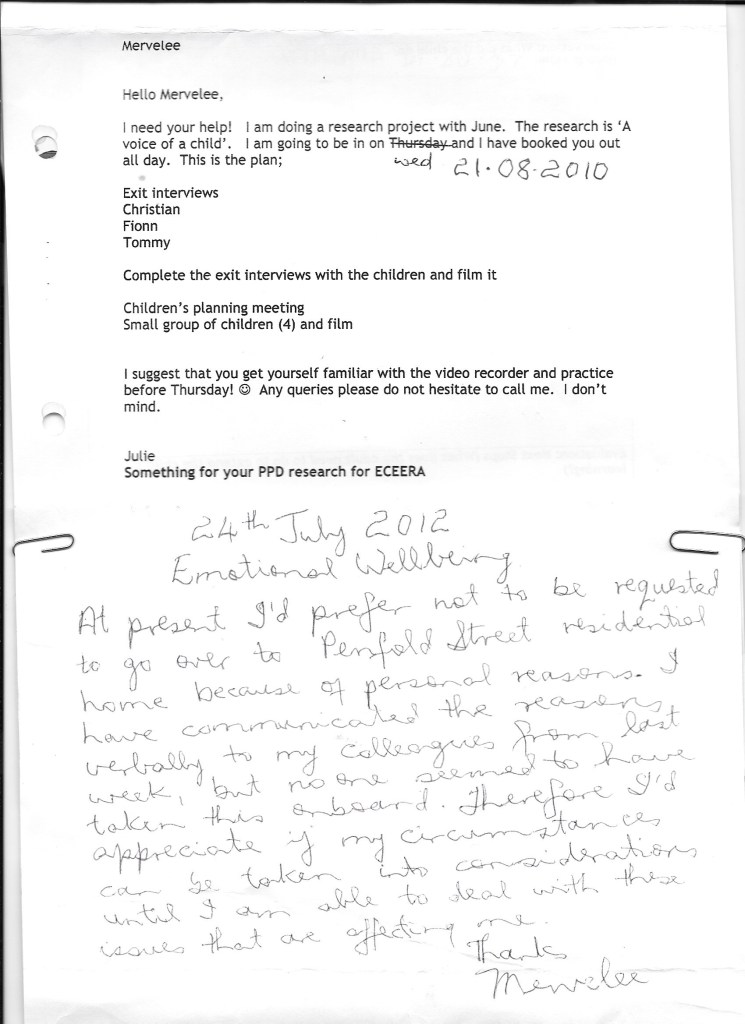 Mervelee
Hello Mervelee,
I need your help! I am doing a research project with June. The research is ‘A
voice of a child’. I am going to be in on Thursday and I have booked you out
wed 21.08.2010
all day. This is the plan;
Exit interviews
Christian
Fionn
Tommy
Complete the exit interviews with the children and film it
Children’s planning meeting
Small group of children (4) and film
I suggest that you get yourself familiar with the video recorder and practice
before Thursday! ☺ Any queries please do not hesitate to call me. I don’t
mind.
Julie
Something for your PPD research for ECEERA
24th July 2012
Emotional Wellbeing
At present I'd prefer not to be requested
to go over to Penfold Street residential
home because of personal reasons. I
have communicated the reasons
verbally to my colleagues from last
week, but no one seemed to have
taken this onboard. Therefore I'd
appreciate if my circumstances
can be taken into considerations
until I am able to deal with these
issues that are affecting me.
Thanks
Mervelee